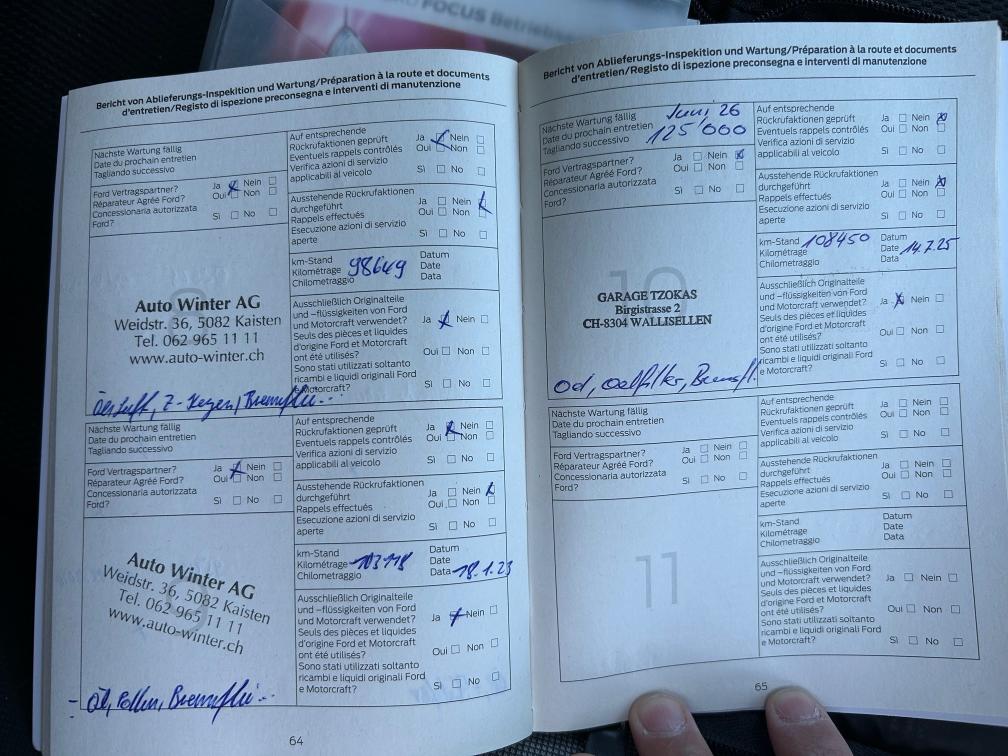 FOCUS Betriebs
Bericht von Ablieferungs-Inspektion und Wartung/Préparation à la route et documents
d'entretien/Registo di ispezione preconsegna e interventi di manutenzione
Nächste Wartung fällig
Date du prochain entretien
Tagliando successivo
Auf entsprechende
Rückrufaktionen geprüft
Eventuels rappels contrôlés
Verifica azioni di servizio
applicabili al veicolo
Ja Nein
Oui Non
Sì No
Ford Vertragspartner?
Réparateur Agréé Ford?
Concessionaria autorizzata
Ford?
Ja Nein
Oui Non
Sì No
Ausstehende Rückrufaktionen
durchgeführt
Rappels effectués
Esecuzione azioni di servizio
aperte
Ja Nein
Oui Non
Sì No
km-Stand
Kilométrage
Chilometraggio
98649
Datum
Date
Data
Auto Winter AG
Weidstr. 36, 5082 Kaisten
Tel. 062 965 11 11
www.auto-winter.ch
Ausschließlich Originalteile
und -flüssigkeiten von Ford
und Motorcraft verwendet?
Seuls des pièces et liquides
d'origine Ford et Motorcraft
ont été utilisés?
Sono stati utilizzati soltanto
ricambi e liquidi originali Ford
e Motorcraft?
Ja Nein
Oui Non
Sì No
Nächste Wartung fällig
Date du prochain entretien
Tagliando successivo
Auf entsprechende
Rückrufaktionen geprüft
Eventuels rappels contrôlés
Verifica azioni di servizio
applicabili al veicolo
Ja Nein
Oui Non
Sì No
Ford Vertragspartner?
Réparateur Agréé Ford?
Concessionaria autorizzata
Ford?
Ja Nein
Oui Non
Sì No
Ausstehende Rückrufaktionen
durchgeführt
Rappels effectués
Esecuzione azioni di servizio
aperte
Ja Nein
Oui Non
Sì No
km-Stand
Kilométrage
Chilometraggio
103118
Datum
Date
Data 18.1.23
Auto Winter AG
Weidstr. 36, 5082 Kaisten
Tel. 062 965 11 11
www.auto-winter.ch
Ausschließlich Originalteile
und -flüssigkeiten von Ford
und Motorcraft verwendet?
Seuls des pièces et liquides
d'origine Ford et Motorcraft
ont été utilisés?
Sono stati utilizzati soltanto
ricambi e liquidi originali Ford
e Motorcraft?
Ja Nein
Oui Non
Sì No
Öl, Pollen, Bremsflü...
64
Bericht von Ablieferungs-Inspektion und Wartung/Préparation à la route et documents
d'entretien/Registo di ispezione preconsegna e interventi di manutenzione
Nächste Wartung fällig
Date du prochain entretien
Tagliando successivo
Juni 26
125'000
Auf entsprechende
Rückrufaktionen geprüft
Eventuels rappels contrôlés
Verifica azioni di servizio
applicabili al veicolo
Ja Nein
Oui Non
Sì No
Ford Vertragspartner?
Réparateur Agréé Ford?
Concessionaria autorizzata
Ford?
Ja Nein
Oui Non
Sì No
Ausstehende Rückrufaktionen
durchgeführt
Rappels effectués
Esecuzione azioni di servizio
aperte
Ja Nein
Oui Non
Sì No
km-Stand
Kilométrage
Chilometraggio
108450
Datum
Date
Data
14.7.25
10
GARAGE TZOKAS
Birgistrasse 2
CH-8304 WALLISELLEN
Ausschließlich Originalteile
und -flüssigkeiten von Ford
und Motorcraft verwendet?
Seuls des pièces et liquides
d'origine Ford et Motorcraft
ont été utilisés?
Sono stati utilizzati soltanto
ricambi e liquidi originali Ford
e Motorcraft?
Ja Nein
Oui Non
Sì No
Oel, Oelfilter, Bremsfl.
Nächste Wartung fällig
Date du prochain entretien
Tagliando successivo
Auf entsprechende
Rückrufaktionen geprüft
Eventuels rappels contrôlés
Verifica azioni di servizio
applicabili al veicolo
Ja Nein
Oui Non
Sì No
Ford Vertragspartner?
Réparateur Agréé Ford?
Concessionaria autorizzata
Ford?
Ja Nein
Oui Non
Sì No
Ausstehende Rückrufaktionen
durchgeführt
Rappels effectués
Esecuzione azioni di servizio
aperte
Ja Nein
Oui Non
Sì No
km-Stand
Kilométrage
Chilometraggio
Datum
Date
Data
11
Ausschließlich Originalteile
und -flüssigkeiten von Ford
und Motorcraft verwendet?
Seuls des pièces et liquides
d'origine Ford et Motorcraft
ont été utilisés?
Sono stati utilizzati soltanto
ricambi e liquidi originali Ford
e Motorcraft?
Ja Nein
Oui Non
Sì No
65